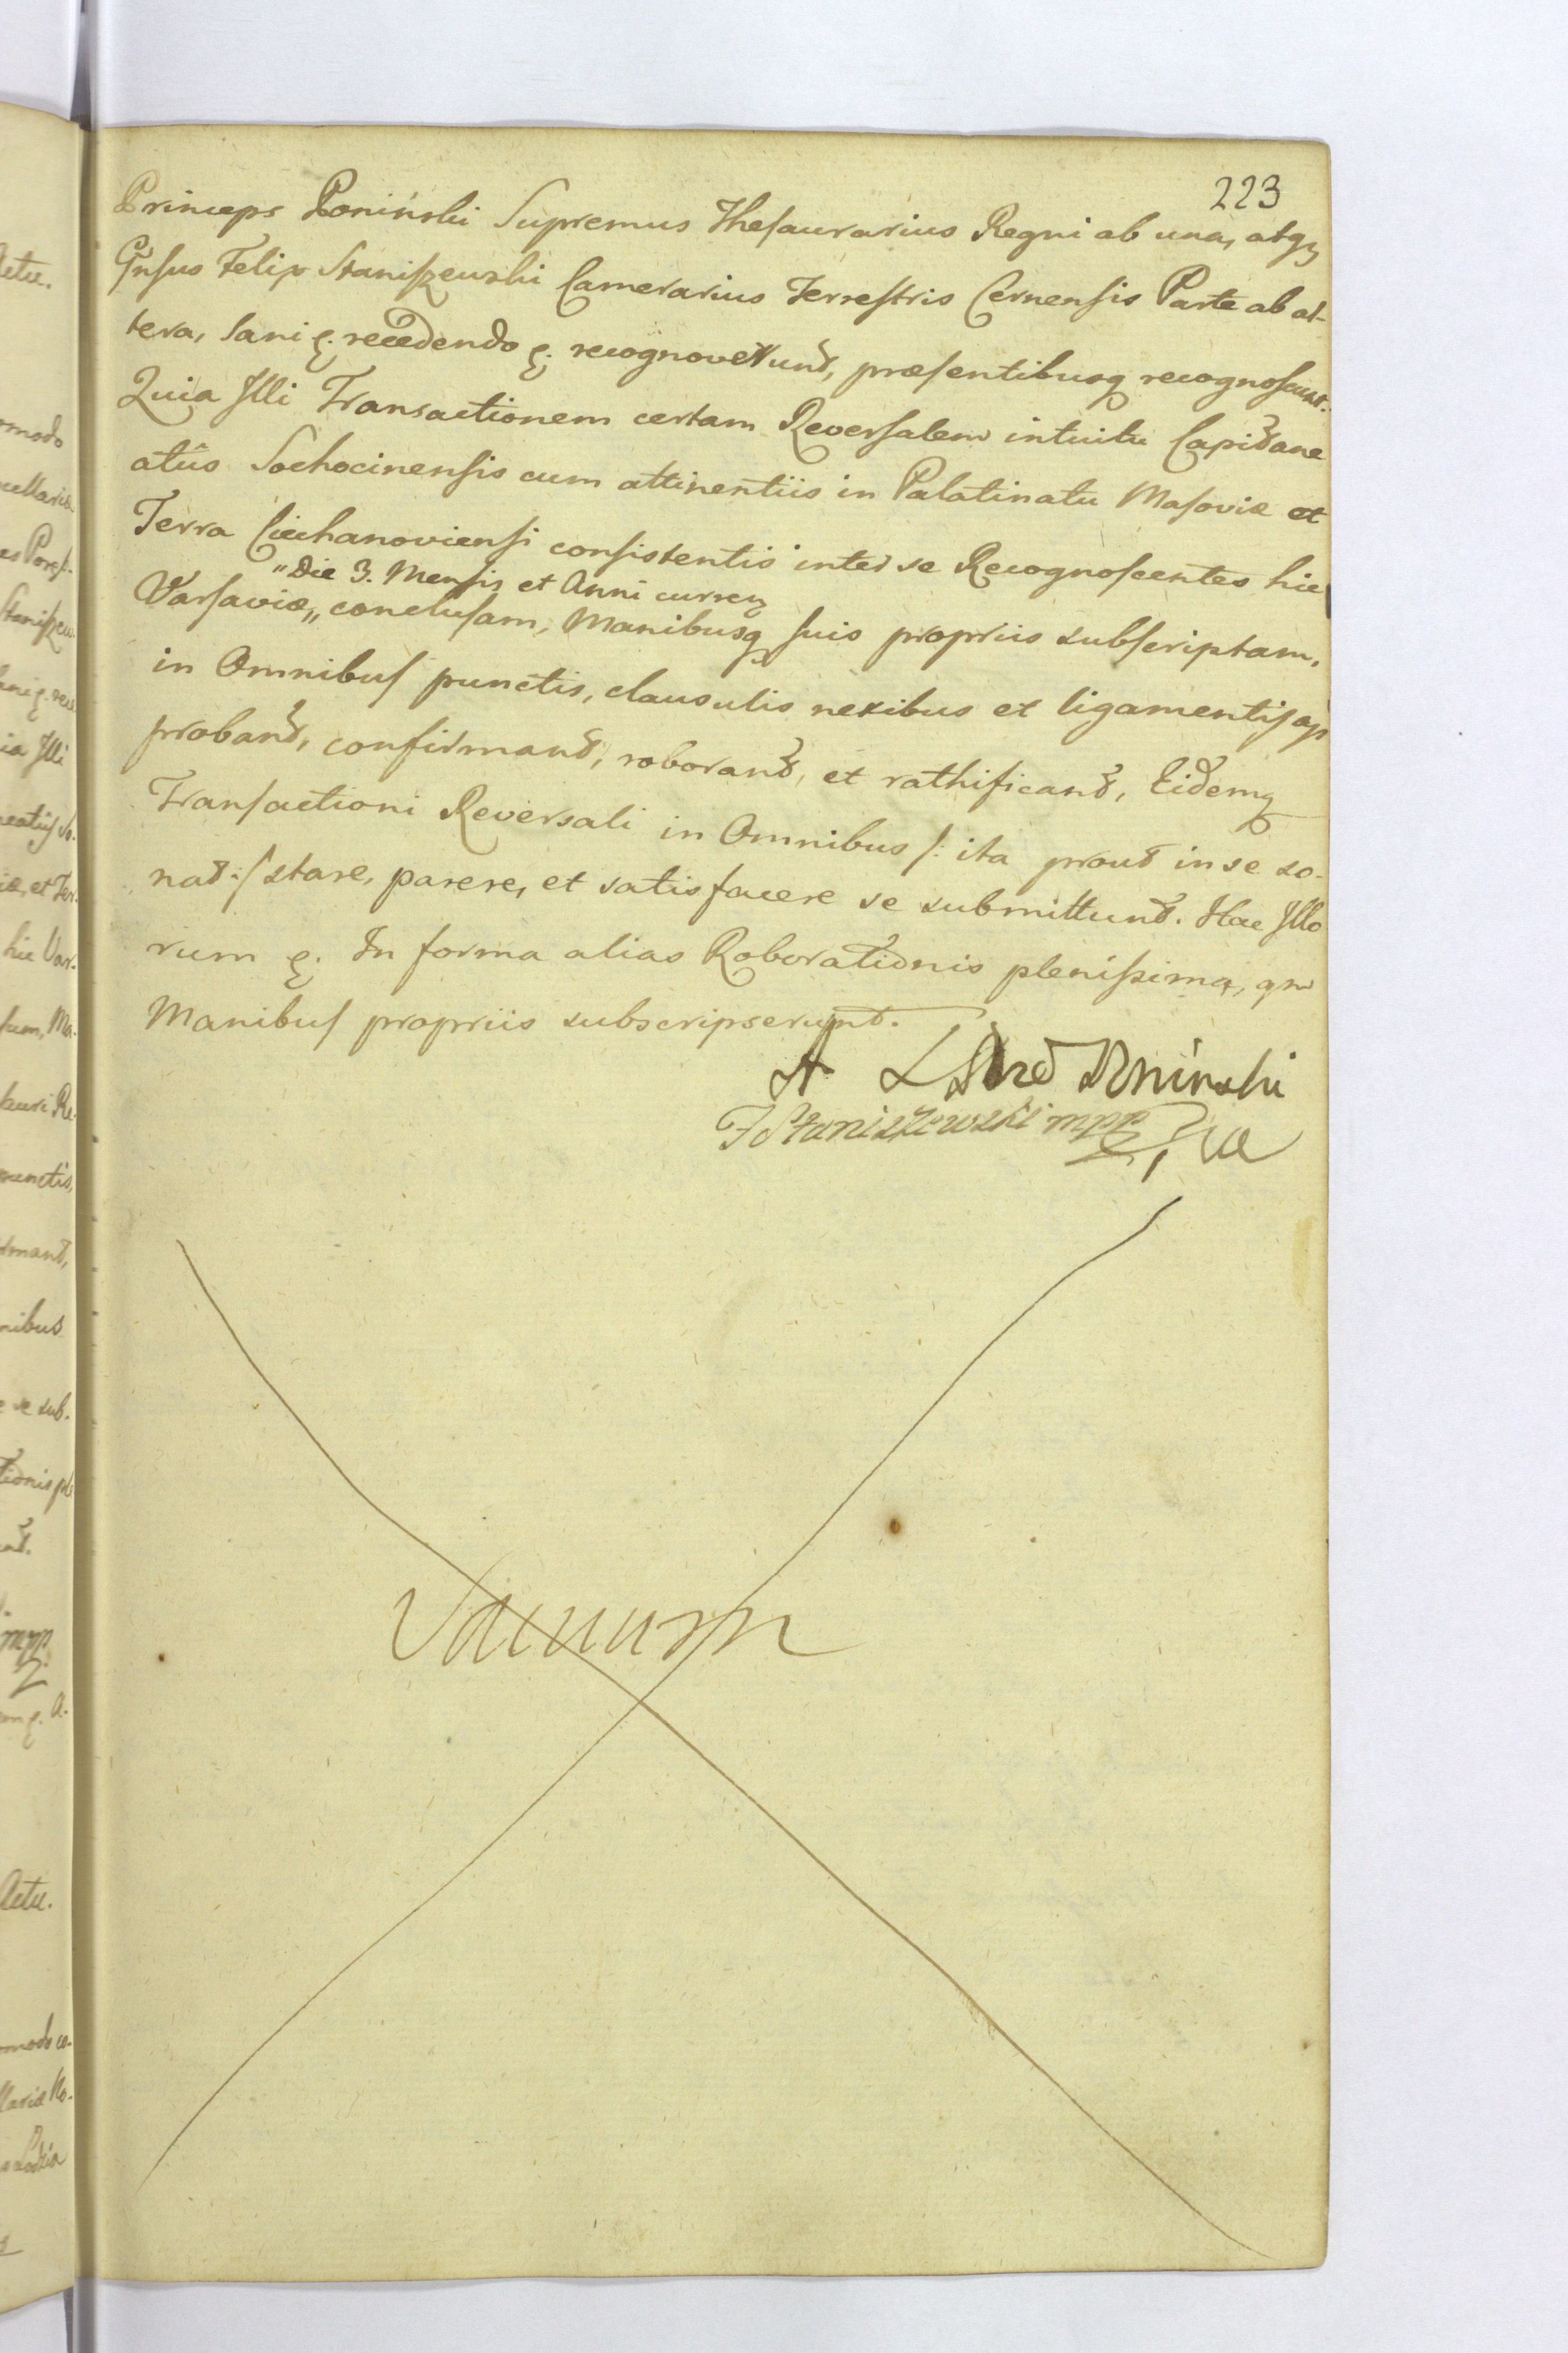 223
Princeps Poniński Supremus Thesaurarius Regni ab una, atq3
Gnsus Felix Staniszewski Camerarius Terrestris Cernensis Parte ab al-
tera, Sani ę. recedendo ę. recognoverunt, præsentibusq recognoscunt.
Quia Illi Transactionem certam Reversalem intuitu Capitane
atûs Sochocinensis cum attinentiis in Palatinatu Masoviæ et
Terra Ciechanoviensi consistentis inter se Recognoscentes hic
"Die 3. Mensis et Anni curren
Varsaviæ,, conclusam, Manibusq suis propriis subscriptam,
in Omnibus punctis, clausulis nexibus et ligamentis ap
probant, confirmant, roborant, et rathificant, Eidemq
Transactioni Reversali in Omnibus /: ita prout in se so-
nat :/ stare, parere, et satisfacere se submittunt. Hac Illo
rum ę. In forma alias Roborationis plenissima, qm
Manibus propriis subscripserunt.
A Poniński
FStaniszewski mpp
Vacuum
Actu.
omodo
cellariæ
Staniszew
ia Illi
iæ, et Ter-
hic Var-
sam, Ma-
punctis,
rmant,
nibus
e se sub-
tionis pl
mpp
Actu.